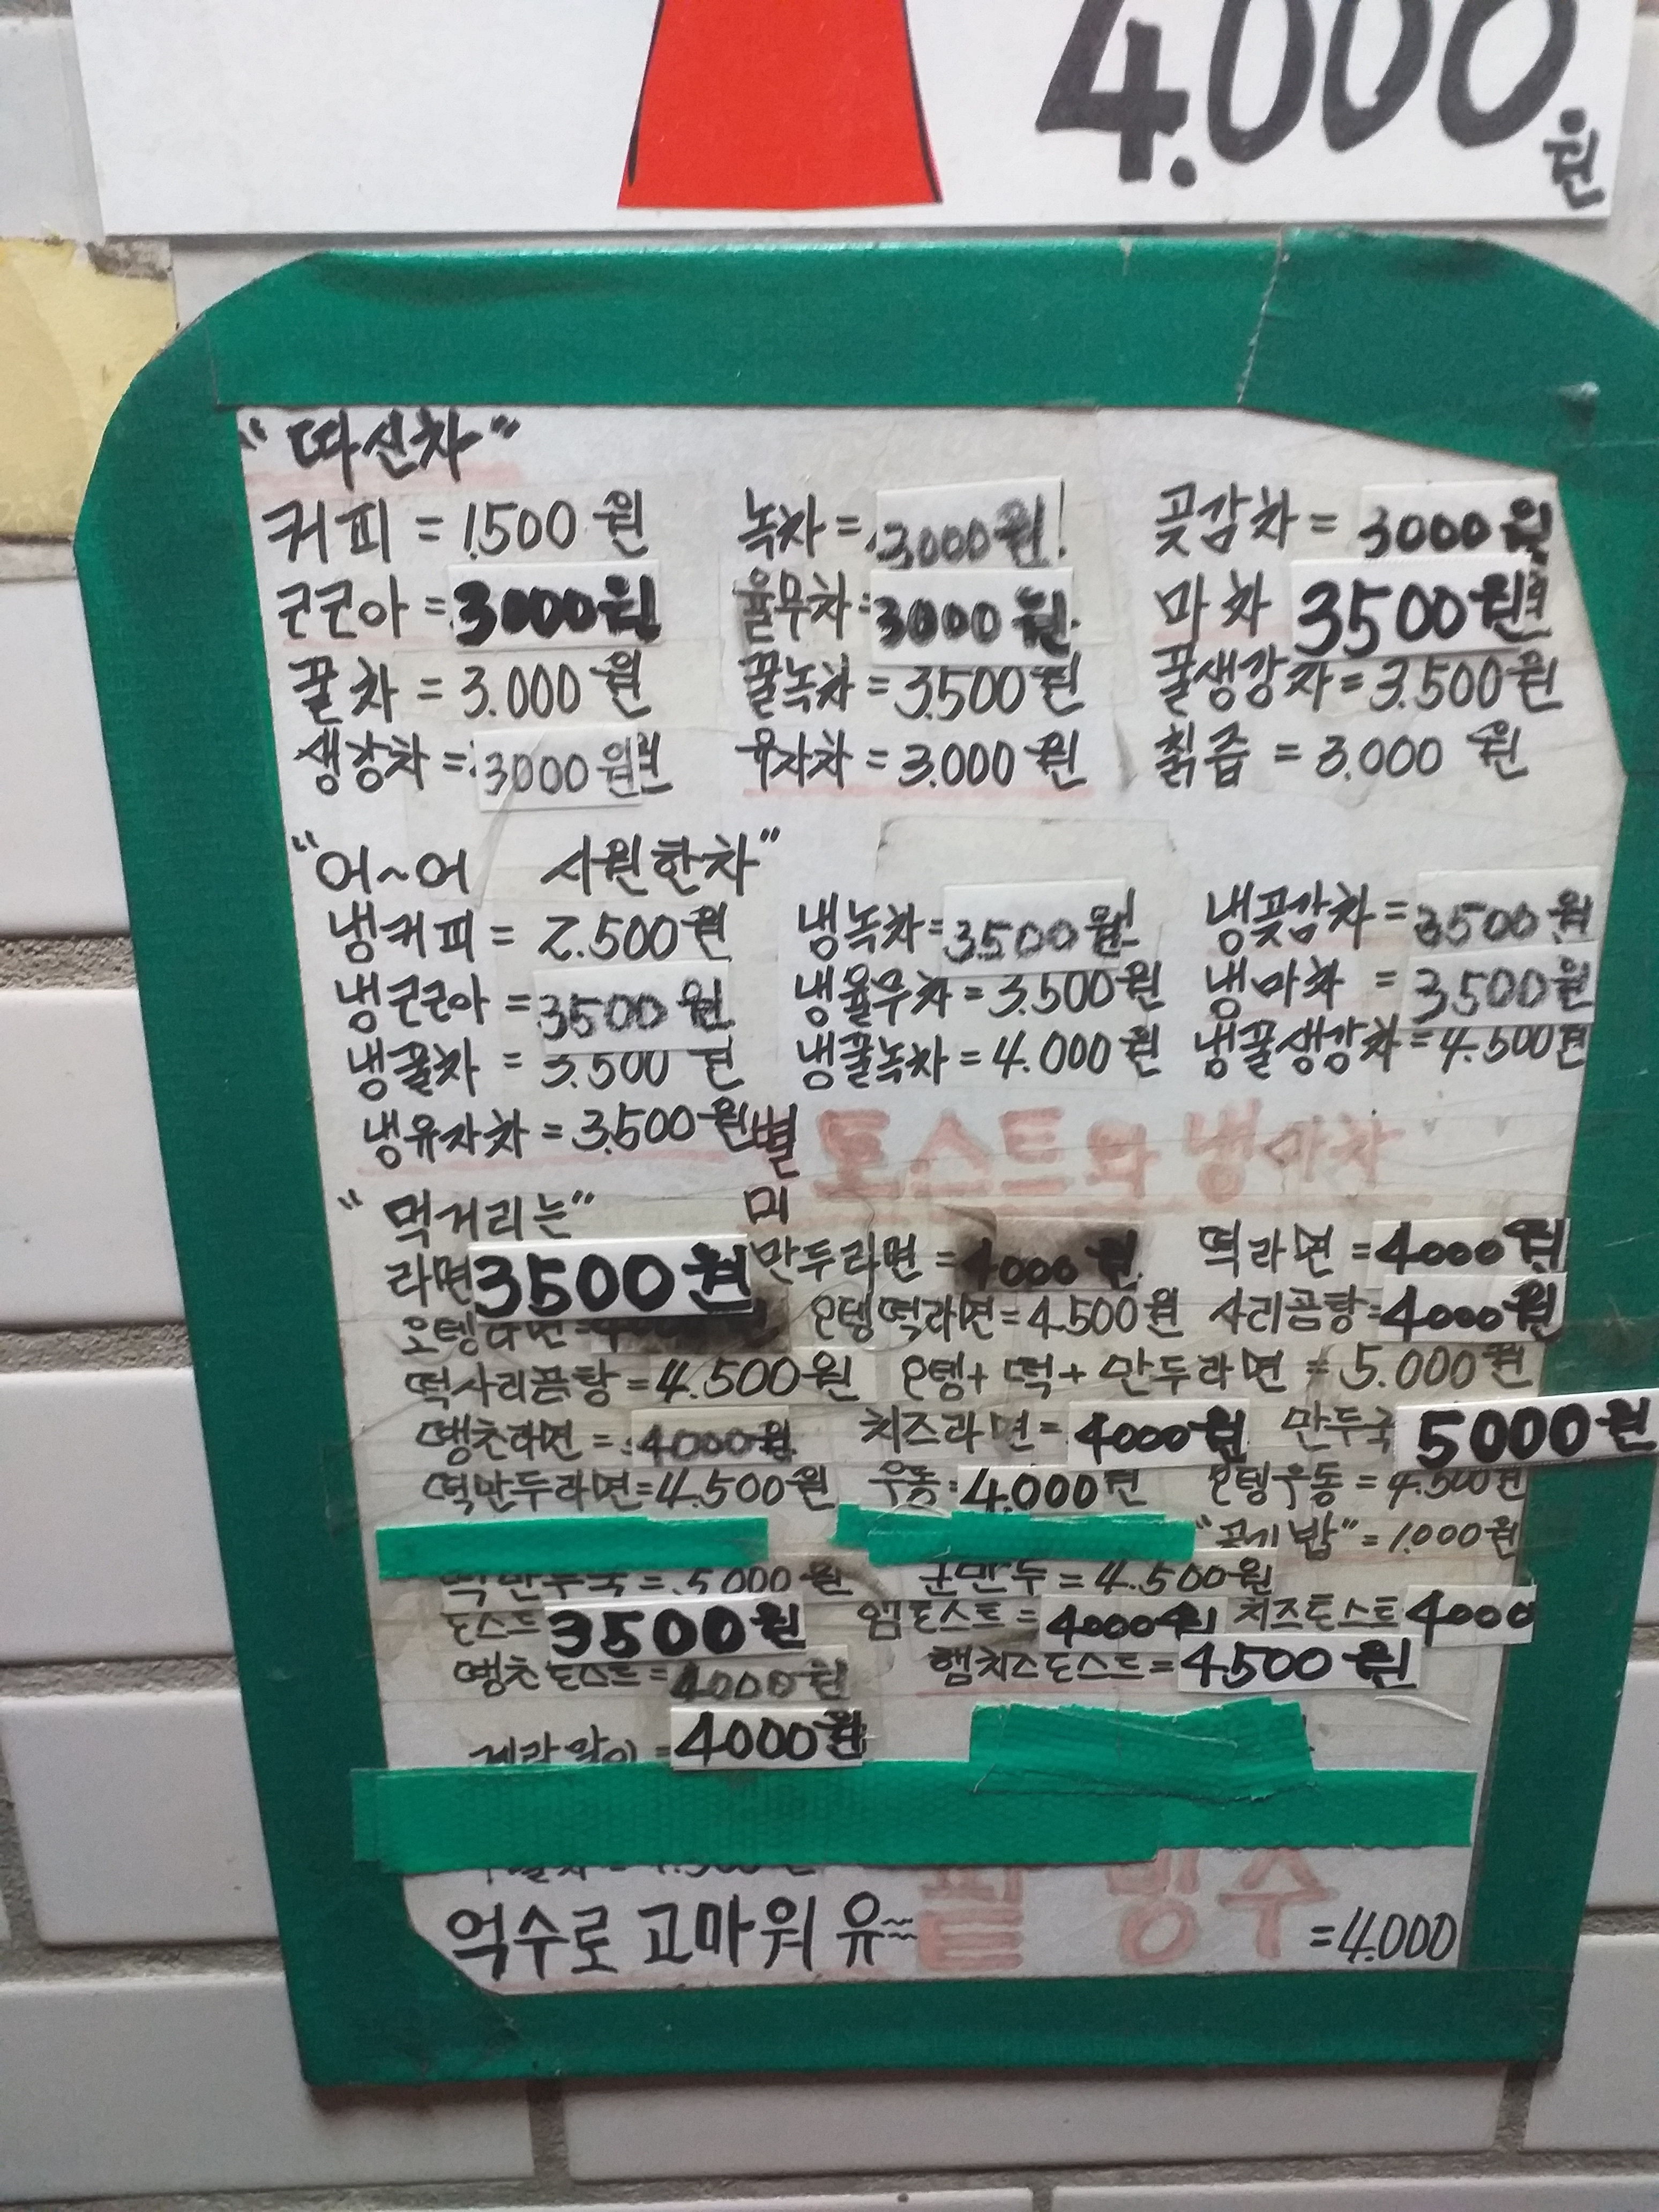 4.000원
"따신차"
커피 = 1.500원 녹차 = 3000원 곶감차 = 3000원
코코아 = 3000원 율무차 = 3000원 마차 3500원
꿀차 = 3.000원 꿀녹차 = 3.500원 꿀생강차 = 3.500원
생강차 = 3000원 유자차 = 3.000원 칡즙 = 3.000원
"어~어 시원한차"
냉커피 = 2.500원 냉녹차 = 3.500원 냉곶감차 = 3500원
냉코코아 = 3500원 냉율무차 = 3.500원 냉마차 = 3500원
냉꿀차 = 3.500원 냉꿀녹차 = 4.000원 냉꿀생강차 = 4.500원
냉유자차 = 3.500원 별미 토스트와 냉마차
"먹거리는"
라면 3500원 만두라면 = 4000원 떡라면 = 4000원
오뎅라면 = 오뎅떡라면 = 4.500원 사리곰탕 = 4000원
떡사리곰탕 = 4.500원 오뎅 + 떡 + 만두라면 = 5.000원
땡초라면 = 4000원 치즈라면 = 4000원 만두국 5000원
떡만두라면 = 4.500원 우동 = 4.000원 오뎅우동 = 4.500원
"공기밥" = 1.000원
떡만두국 = 5000원 군만두 = 4.500원
토스트 3500원 햄토스트 = 4000원 치즈토스트 4000
땡초토스트 = 4000원 햄치즈토스트 = 4500원
계란말이 = 4000원
억수로 고마워 유~ 팥빙수 = 4.000